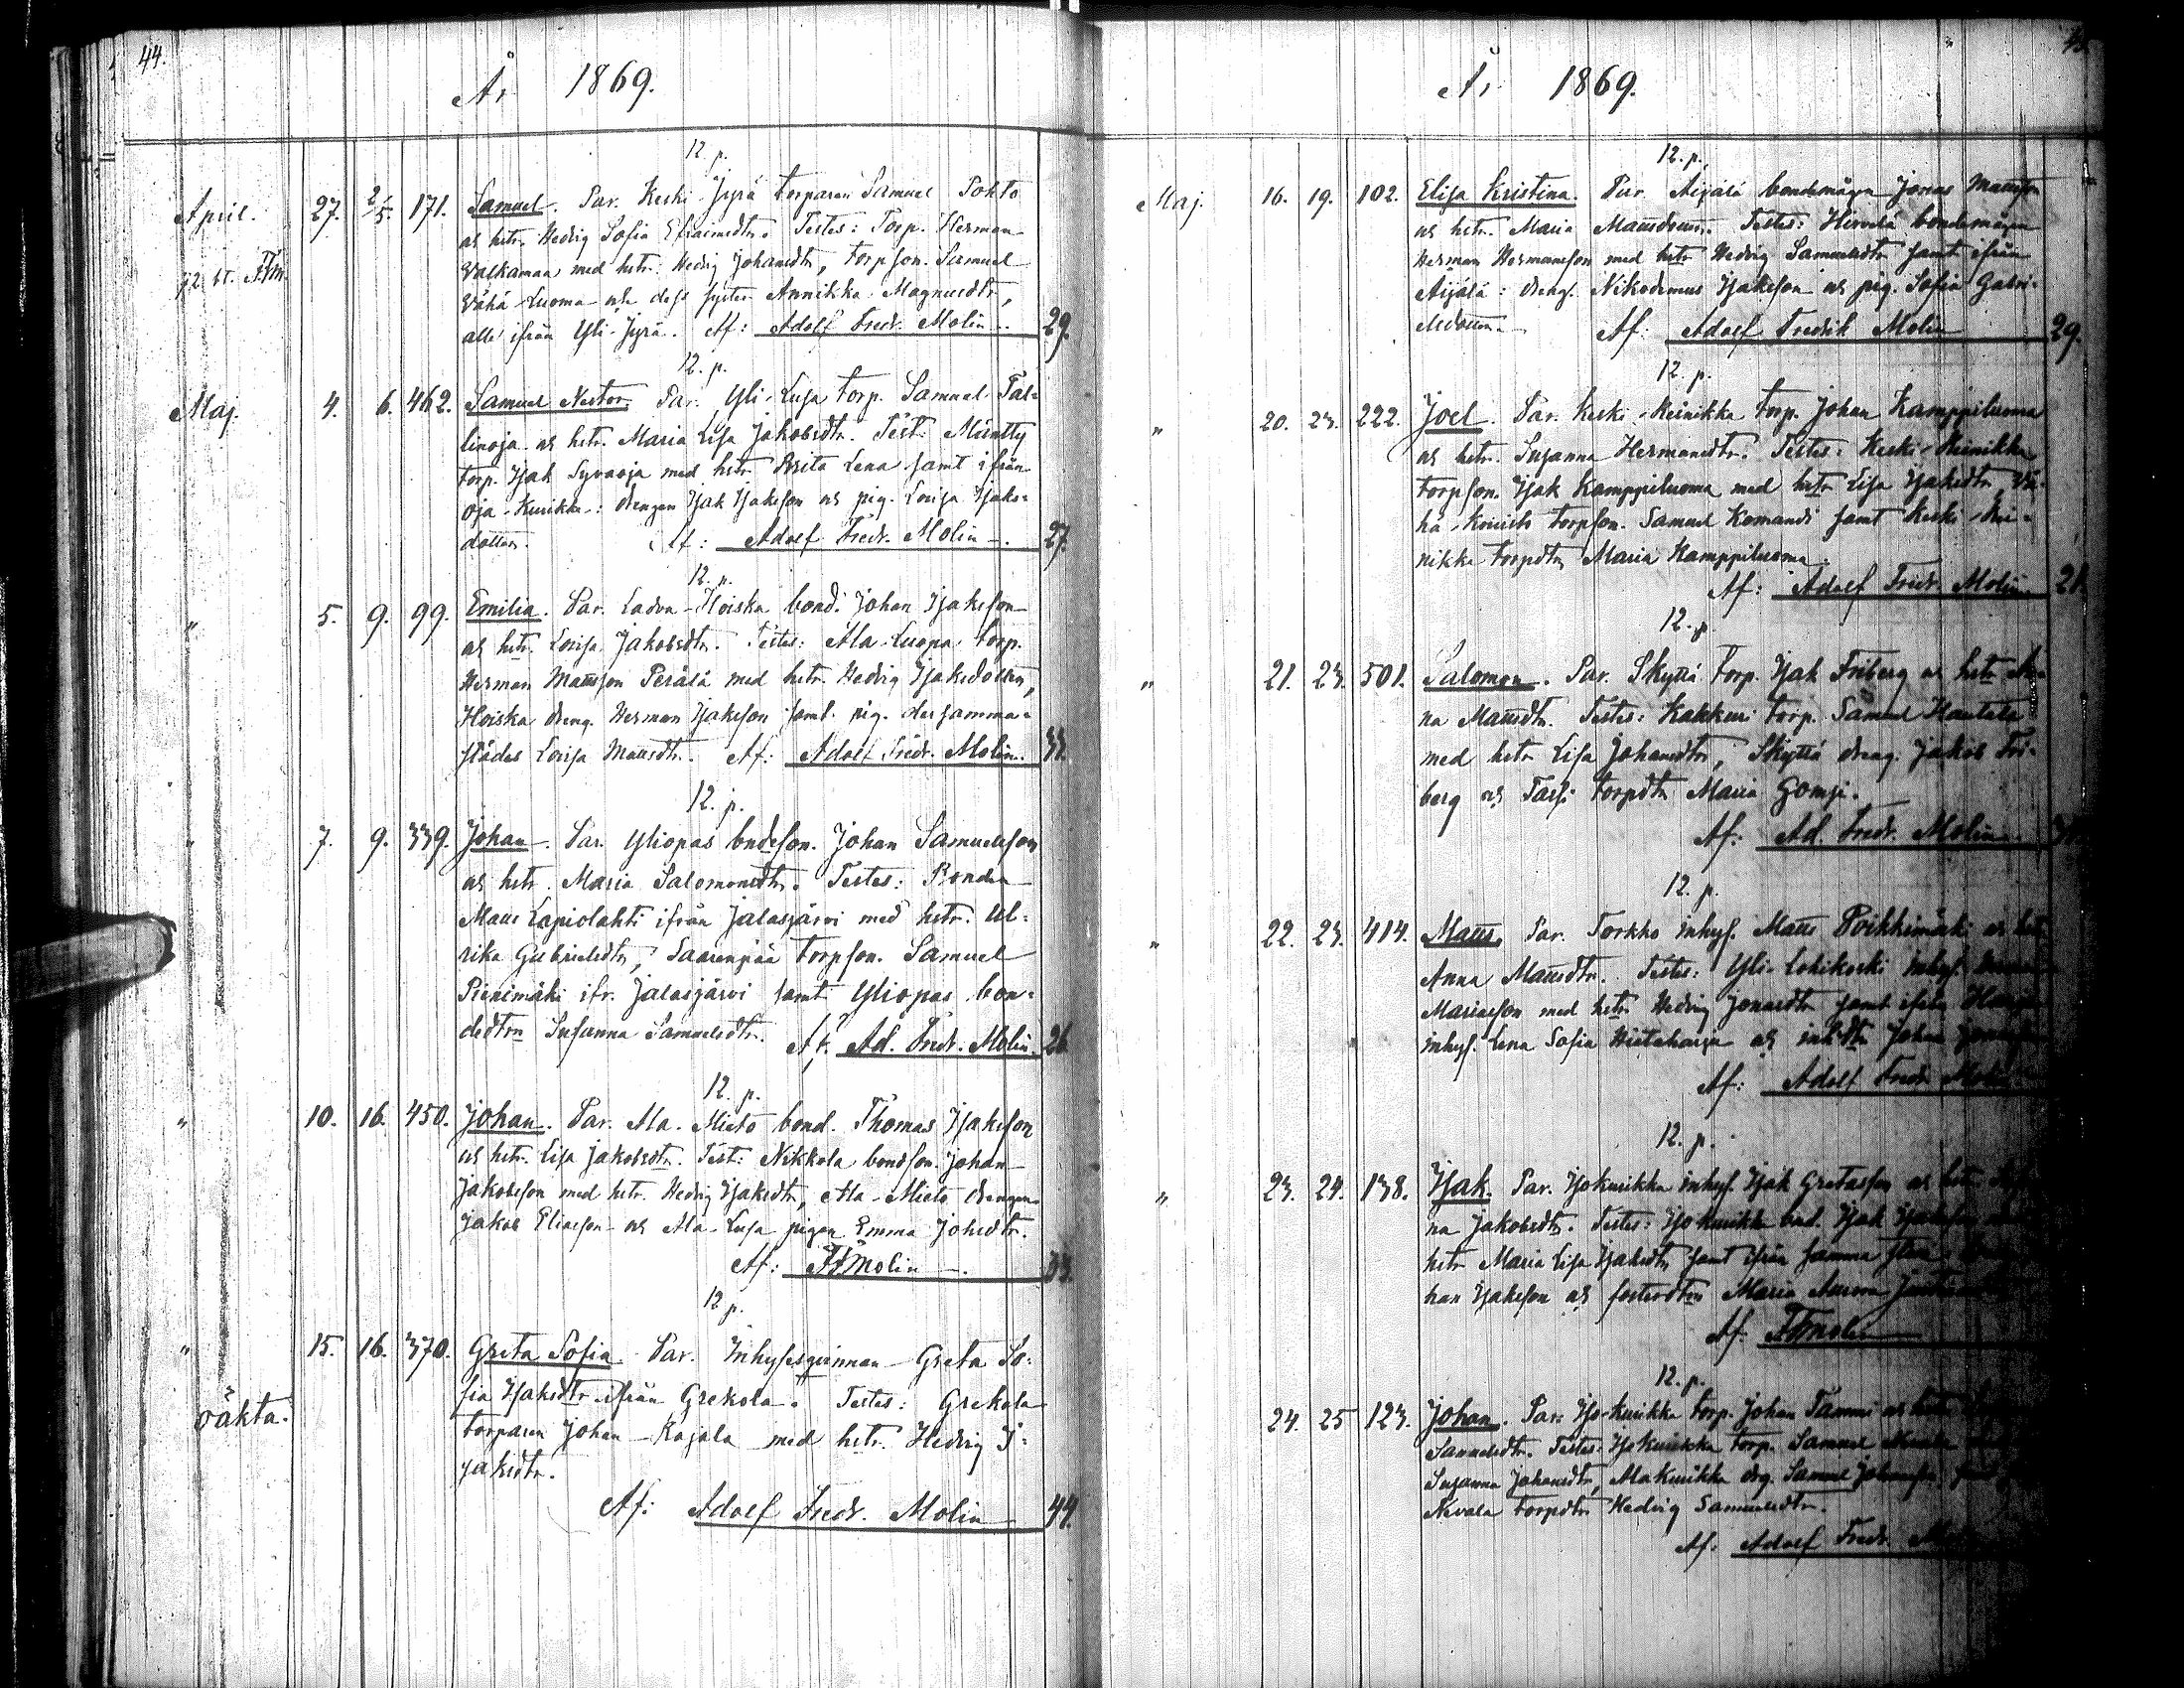 44.
År 1869.
12. p.
April. 27. 2/5. 171. Samuel. Par. Keski-Jyrä torparen Samuel Pohto
os hstr. Hedvig Sofia Efraimsdtr. Testes: Torp. Herman
Valkaman med hstr. Hedvig Johansdtr, torpson. Samuel
Vähä-Luoma och dess syster Annikka Magnusdtr,
alle ifrån Yli-Jyrä. Af: Adolf Fredr. Molin. 29.
12. p.
Maj. 4. 6. 462. Samuel Nestor. Par. Yli-Lusa torp. Samuel Tal=
linoja os hstr. Maria Lisa Jakobsdtr. Test: Mäntty
torp. Isak Syvaoja med hstr. Brita Lena samt ifrån
Oja-Kurikka: drengen Isak Isaksson os pig. Lovisa Isaks=
dotter. Af: Adolf Fredr. Molin. 27.
12. p.
" 5. 9. 99. Emilia. Par. Ladva-Hoiska bond. Johan Isaksson
os hstr. Lovisa Jakobsdtr. Testes: Ala-Luopa torp.
Herman Mattsson Perälä med hstr. Hedvig Isaksdotter,
Hoiska dreng. Herman Isaksson samt pig. dersamma=
städes Lovisa Mattsdtr. Af: Adolf Fredr. Molin. 33.
12. p.
" 7. 9. 339. Johan. Par. Yliopas bndeson. Johan Samuelsson
os hstr. Maria Salomonsdtr. Testes: Bonden
Matts Lapiolahti ifrån Jalasjärvi med hstr. Ul=
rika Gabrielsdtr, Saarenpää torpson. Samuel
Pienimäki ifr. Jalasjärvi samt Yliopas bon=
dedtrn Susanna Samuelsdtr. Af. Ad. Fredr. Molin. 26.
12. p.
" 10. 16. 450. Johan. Par. Ala-Mieto bond. Thomas Isaksson
os hstr. Lisa Jakobsdtr. Test: Nikkola bondson. Johan
Jakobsson med hstr. Hedvig Isaksdtr, Ala-Mieto drengen
Jakob Eliasson os Ala-Lusa pigan Emma Johsdtr.
Af: AFMolin. 33.
12 p.
" 15. 16. 370. Greta Sofia. Par. Inhysesqvinnan Greta So=
oäkta. fia Isaksdtr ifrån Grekola. Testes: Grekola
torparen Johan Rajala med hstr. Hedvig I=
saksdtr.
Af: Adolf Fredr. Molin 44.
År 1869.
12. p.
Maj. 16. 19. 102. Elisa Kristina. Par. Äijälä bondemågen Jonas Mattsson
os hstr. Maria Mattsdotter. Testes: Hirvelä bondemågen
Herman Hermansson med hstr Hedvig Samuelsdtr samt ifrån
Äijälä: drengs. Nikodemus Isaksson os pig. Sofia Gabri=
elsdotter. Af: Adolf Fredrik Molin 29.
12. p.
" 20. 23. 222. Joel. Par. Keski-Reinikka torp. Johan Kamppiluoma
os hstr. Susanna Hermansdtr. Testes: Keski-Reinikka
torpson. Isak Kamppiluoma med hstr Lisa Isaksdtr, Vä=
hä-Knuuti torpson. Samuel Komandi samt Keski-Rei=
nikka torpdtr Maria Kamppiluoma.
Af: Adolf Fredr. Molin. 21.
12. p.
" 21. 23. 501. Salomon. Par. Skyttä torp. Isak Friberg os hstr
na Mattsdtr. Testes: Kakkuri torp. Samuel Hautala
med hstr Lisa Johansdtr, Skyttä dreng. Jakob Fri=
berg os torpdtr Maria
Af: Ad. Fredr. Molin.
12. p.
" 22. 23. 414. Matts. Par. Torkko inhys. Matts Poikkimäki os
Anna Mattsdtr. Testes: Yli-Lohikoski inhys.
Mariasson med hstr. Hedvig Jonasdtr samt ifrån
inhys. Lena Sofia Hietaharju os inhdtr Johan
Af: Adolf Fredr. Molin
12. p.
" 23. 24. 138. Isak. Par. Isokurikka inhys. Isak Gretasson os hstr.
na Jakobsdtr. Testes: Isokurikka bnd. Isak
hstr Maria Lisa Isaksdtr samt ifrån samma
han Isaksson os fosterdtrn Maria
Af. AFMolin
12. p.
24. 25 123. Johan. Par. Iso-Kurikka torp. Johan Tammi os hstr
Samuelsdtr. Testes: Isokurikka torp. Samuel
Susanna Johansdtr, Alakurikka drg. Samuel
Nevala torpdtr. Hedvig Samuelsdtr.
Af. Adolf Fredr.